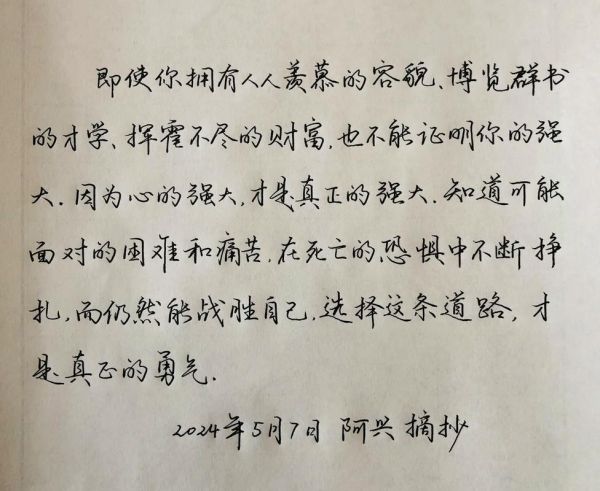 即使你拥有人人羡慕的容貌、博览群书
的才学、挥霍不尽的财富,也不能证明你的强
大.因为心的强大,才是真正的强大.知道可能
面对的困难和痛苦,在死亡的恐惧中不断挣
扎,而仍然能战胜自己,选择这条道路,才
是真正的勇气.
2024年5月7日 阿兴 摘抄